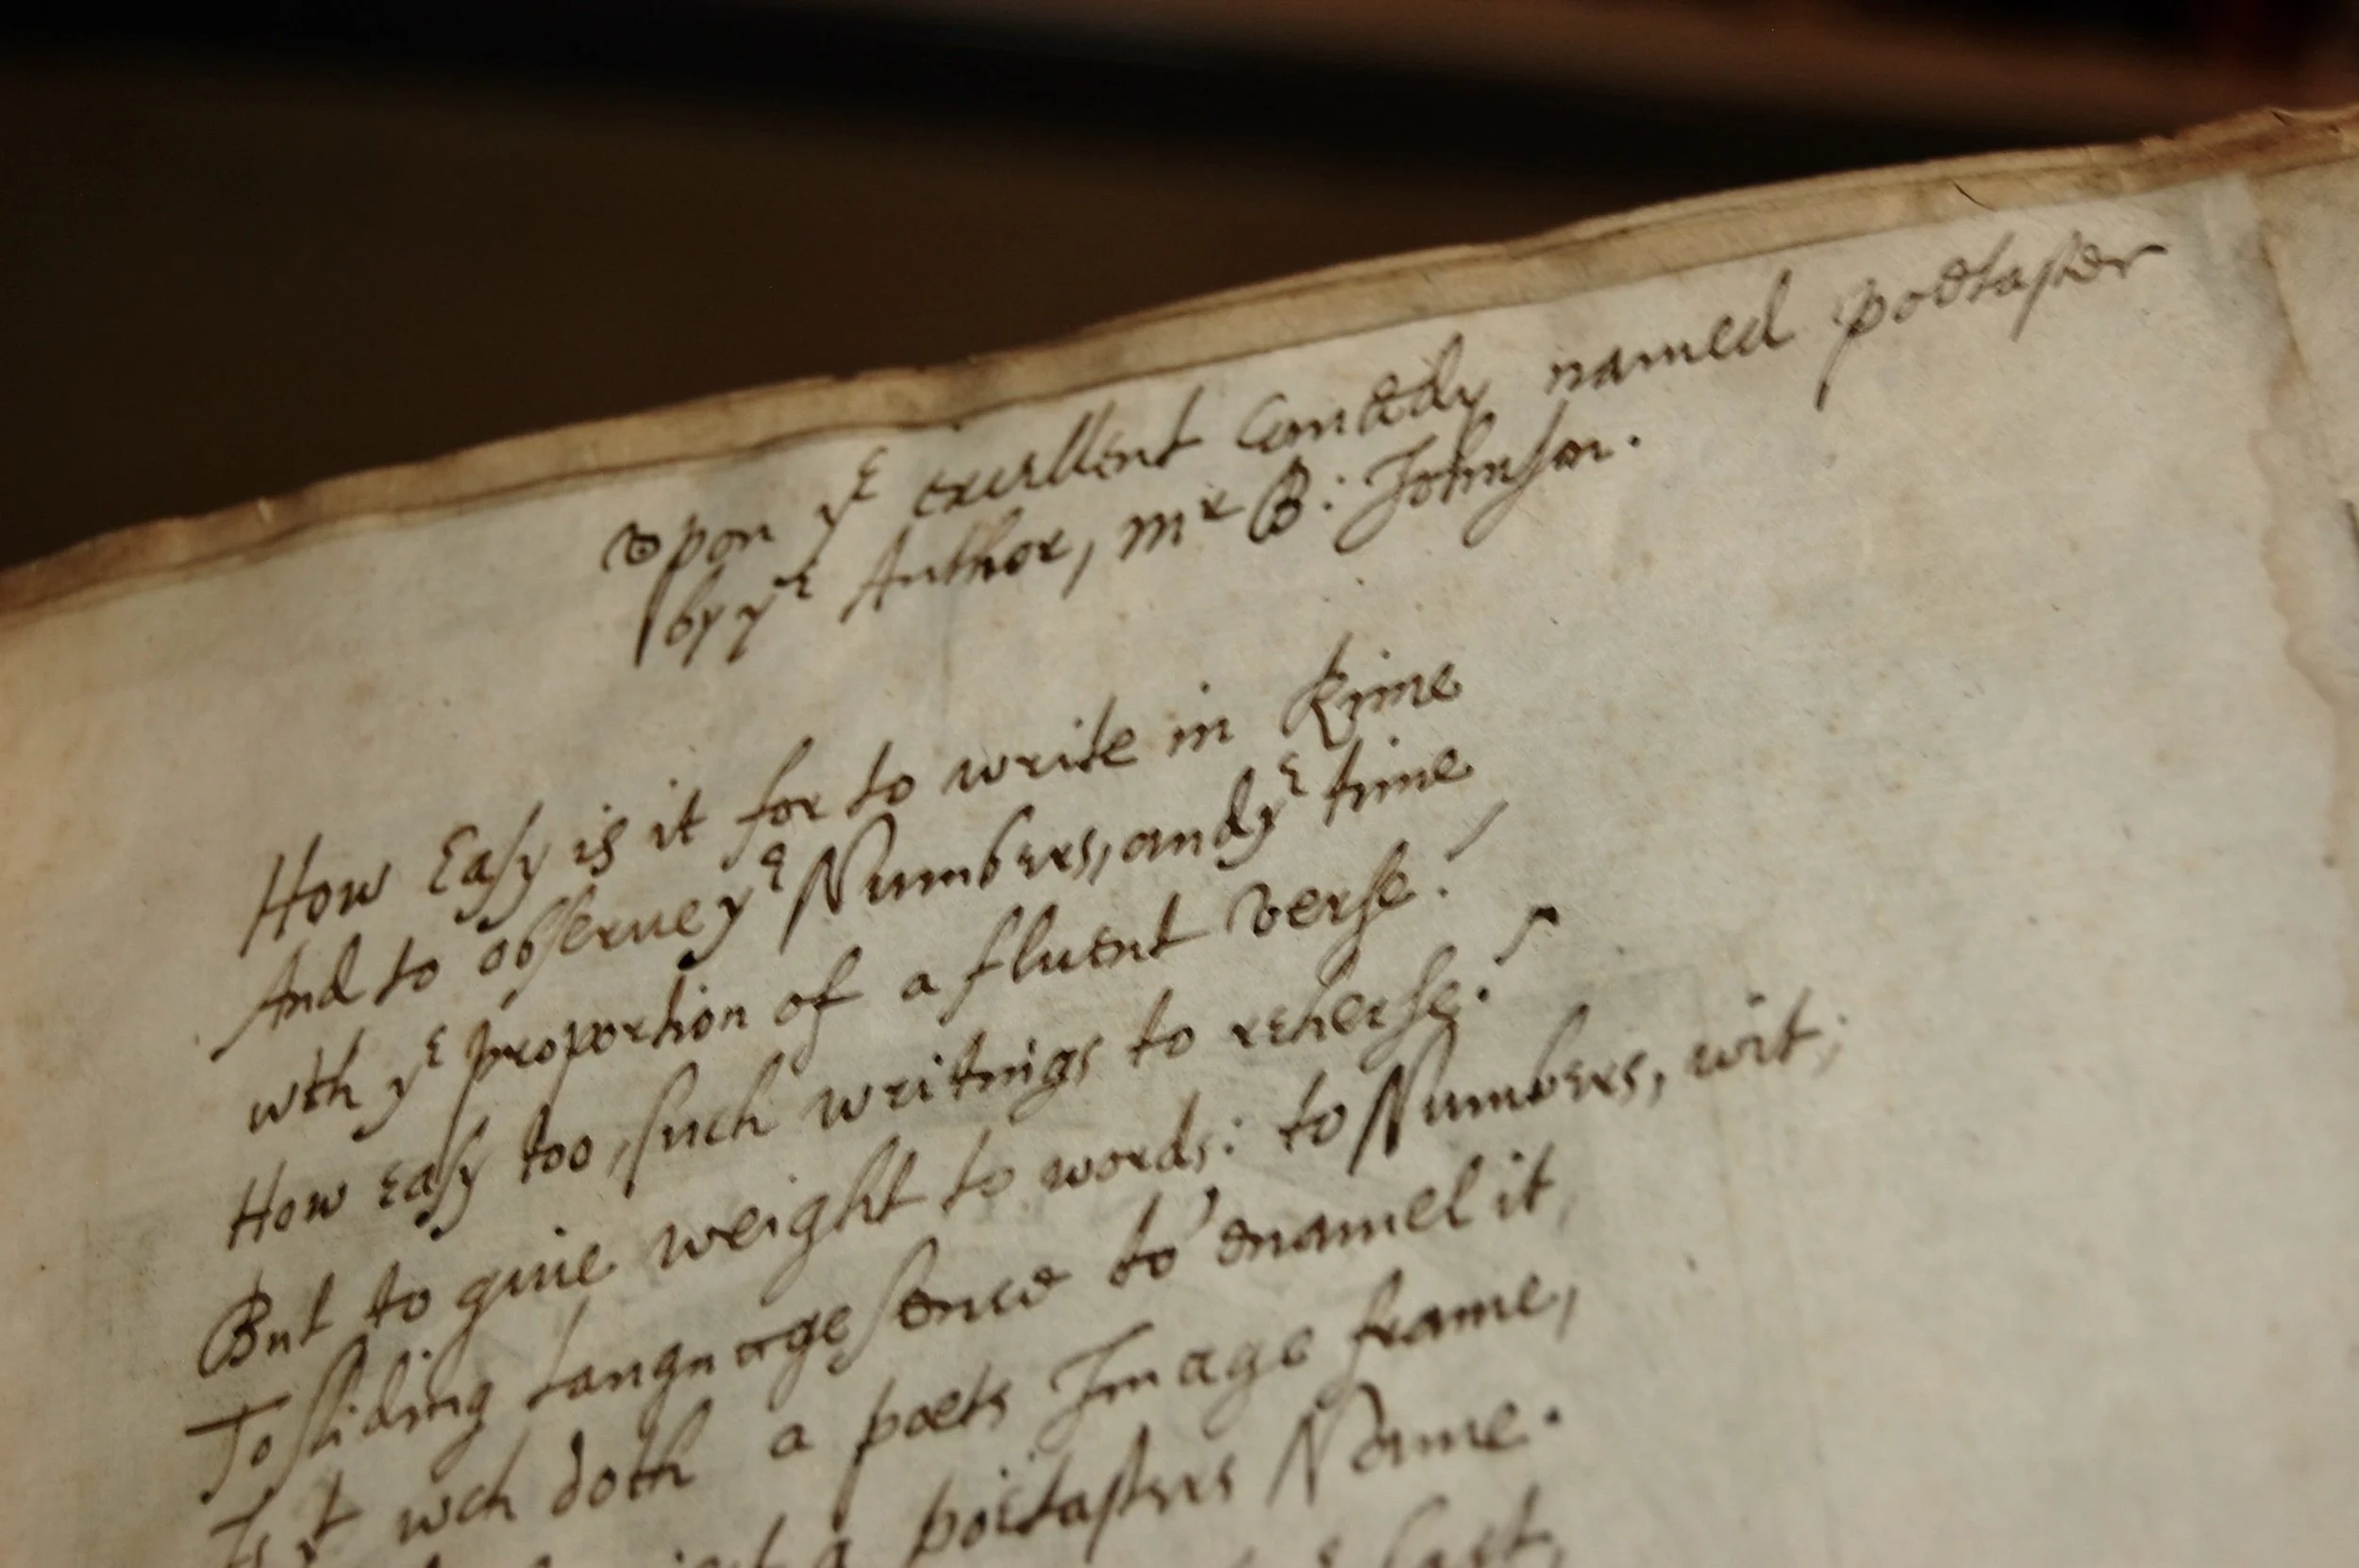 Vpon yᵉ excellent Comædy named poëtaster
by yᵉ Author, mʳ B: Johnson.
How Easy is it for to write in Rime
And to obserue yᵉ Numbers, and yᵉ time
wth yᵉ proportion of a fluent verse!
How easy too, such writings to reherse!
But to giue weight to words: to Numbers, wit;
To sliding language sence to' enamel it,
Is yᵗ wch doth a poets Image frame,
a poëtasters Name.
last,